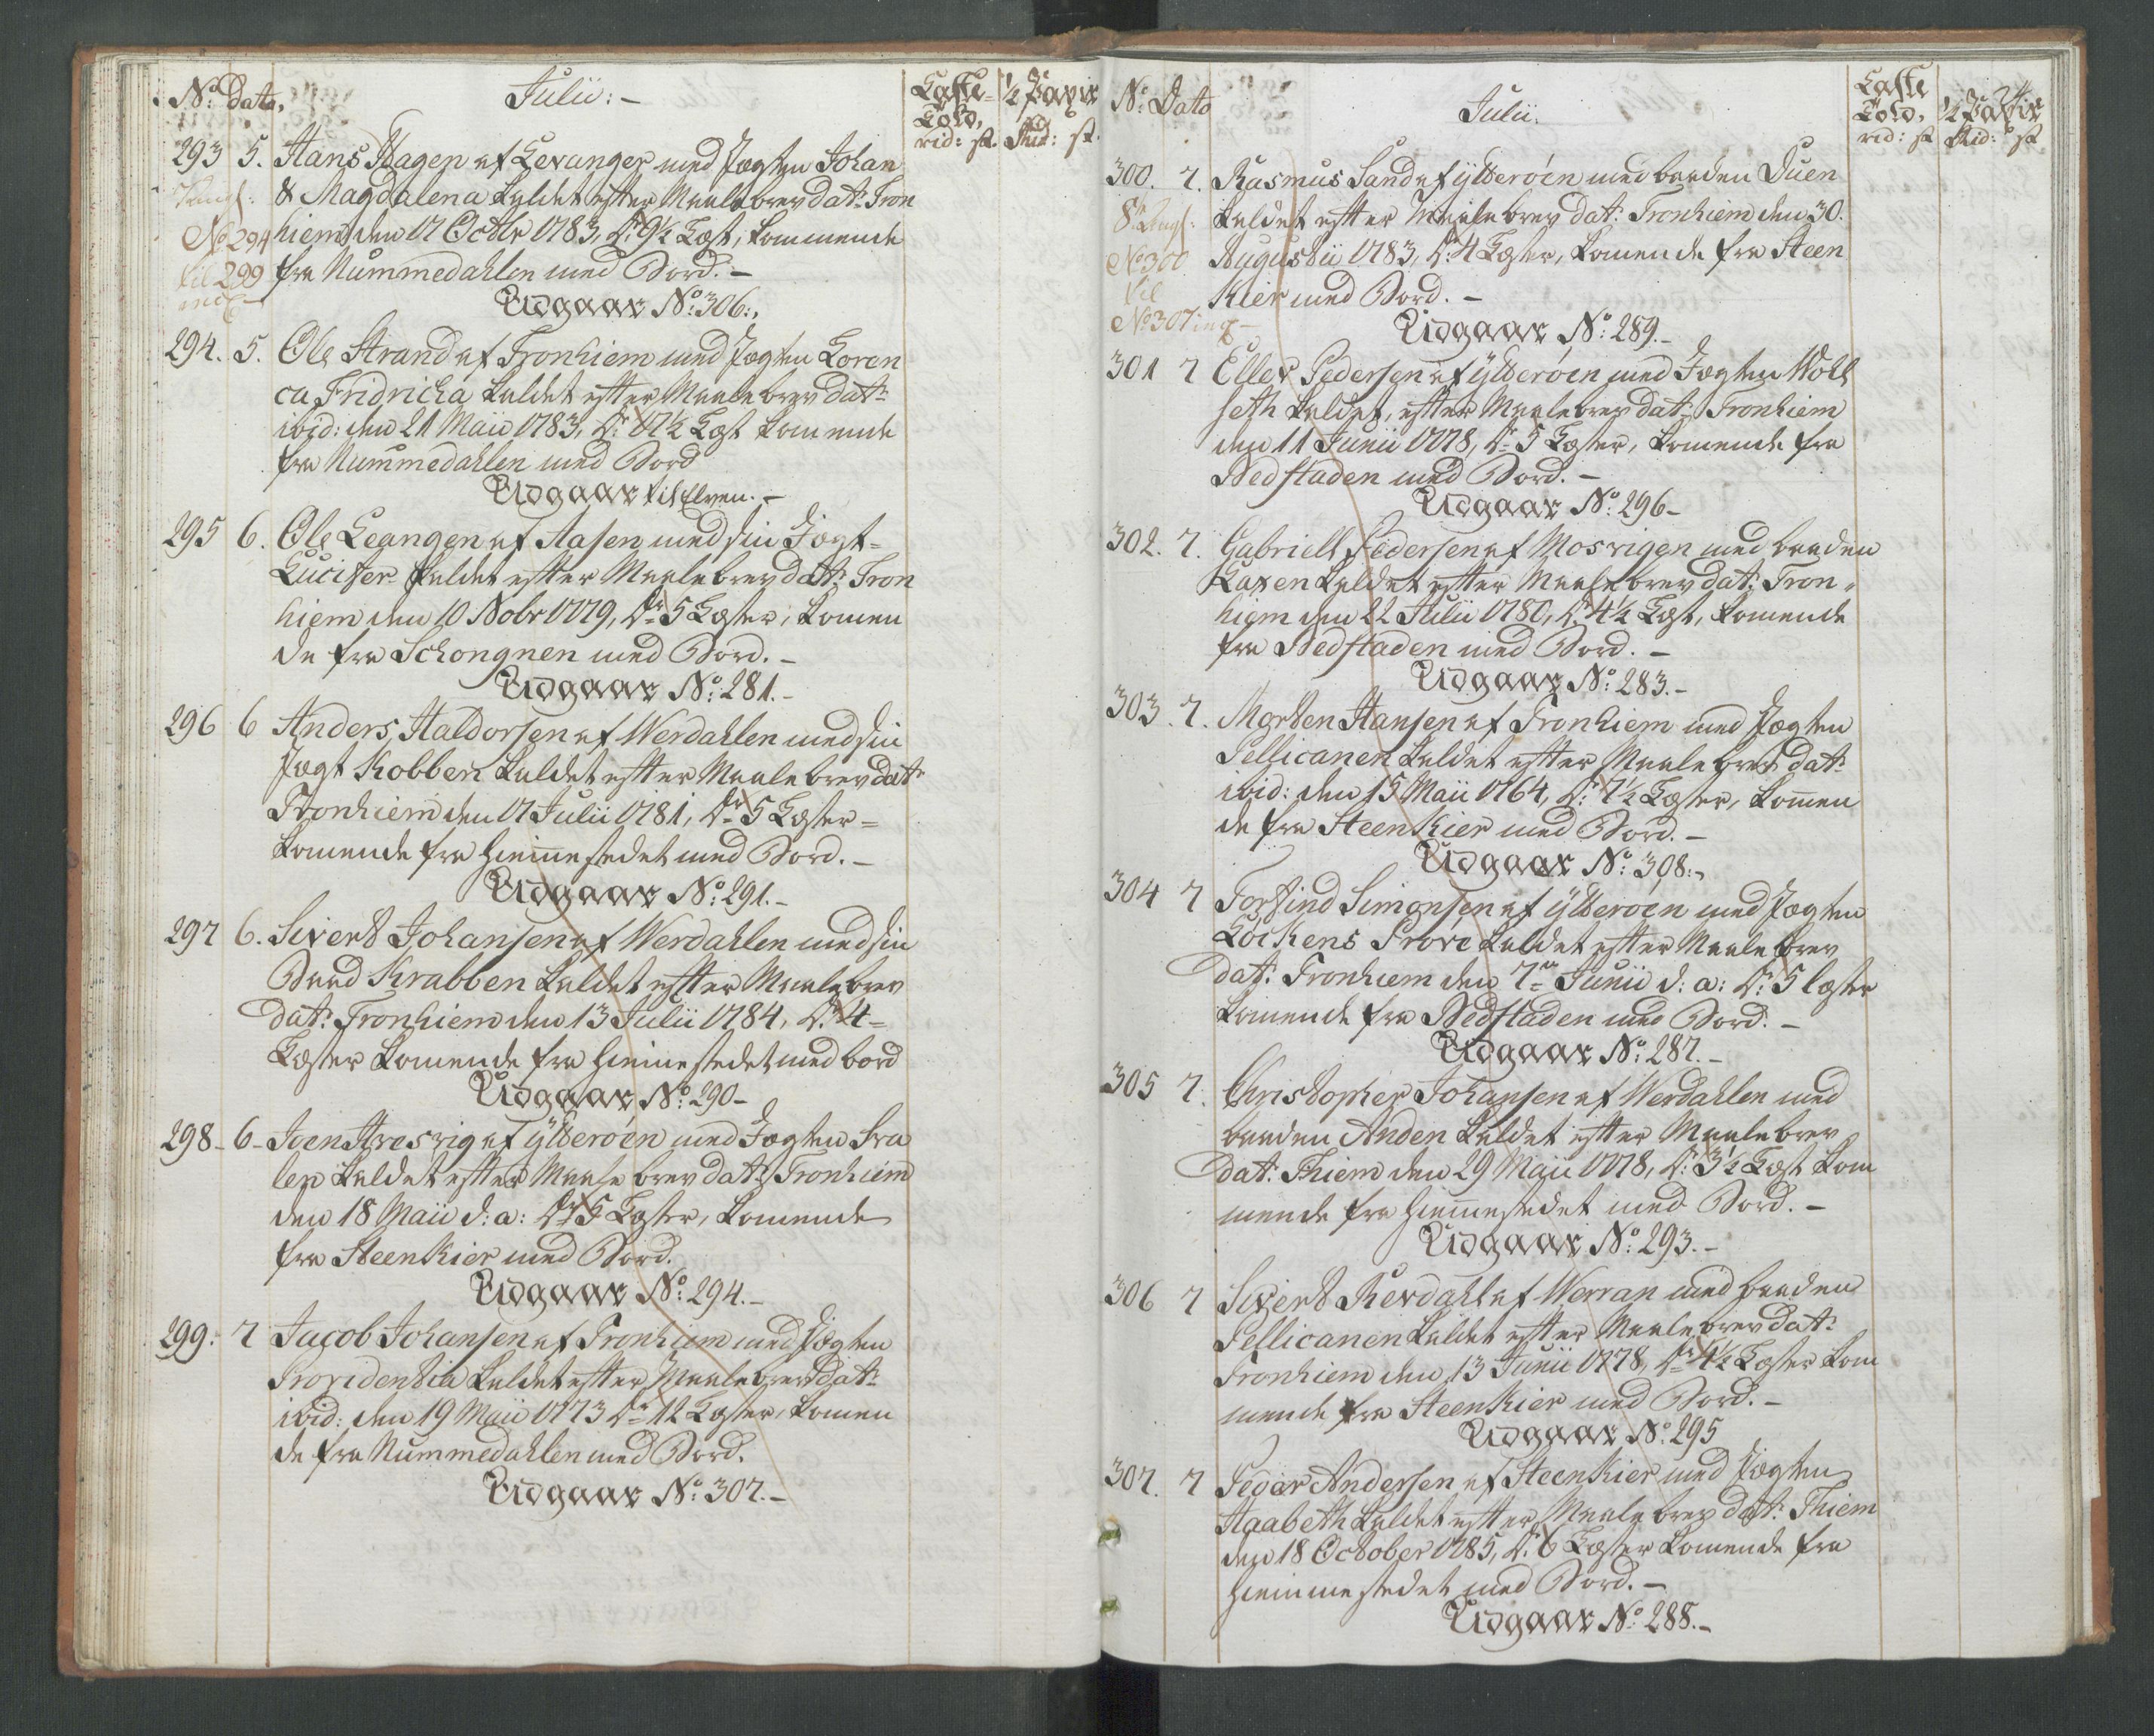 No: dato,
Julii: -
Læste-
Told,
rid: s.
½ Pavir
Rid: s.
293 5. Hans Hagen af Levanger med Jægten Johan
& Magdalena kaldet efter Maalebrev dat: Tron
hiem den 17 Octbr 1783, Dr: 9½ Læst, kommende
fra Nummedahlen med Bord. -
No 294
til 299
incl
Udgaar No: 306:,
294. 5. Ole Strand af Tronhiem med Jægten Loren
ca Fridricha kaldet efter Maalebrev dat:
ibid: den 21 Maii 1783, Dr: 17½ Læst kommende
fra Nummedahlen med Bord
Udgaar til Elven. -
295 6. Ole Leangen af Aasen med sin Jægt-
Lucifer kaldet efter Maalebrev dat: Tron
hiem den 10 Nobr 1779, Dr 5 Læster, komen
de fra Schongnen med Bord. -
Udgaar No: 281. -
296 6 Anders Haldorsen af Werdahlen med sin
Jægt Kobben kaldet efter Maalebrev dat:
Tronhiem den 17 Julii 1781, Dr 5 Læster =
komende fra hiemmestedet med Bord. -
Udgaar No: 291. -
297 6. Sivert Johansen af Werdahlen med sin
Baad Krabben kaldet efter Maalebrev
dat: Tronhiem den 13 Julii 1784, Dr: 4 =
Læster komende fra hiemmestedet med bord
Udgaar No: 290 -
298 - 6 - Joen Hresvig af Ytterøen med Jægten Sva
len kaldet efter Maalebrev dat: Tronhiem
den 18 Maii d: a: Dr 5 Læster, komende
fra Steenkier med Bord.
Udgaar No: 294. -
299: 7 Jacob Johansen af Tronhiem med Jægten
Providentia kaldet efter Maalebrev dat:
ibid: den 19 Maii 1773 Dr 12 Læster, komen
de fra Nummedahlen med Bord.
Udgaar No: 307. -
24
No: Dato
Julii.
Læste
Told,
rid: s
½ Pavir
Rid: s
300. 7. Rasmus Sand af Ytterøen med baaden Duen
kaldet efter Maalebrev dat: Tronhiem den 30.
Augustii 1783, Dr: 4 Læster, komende fra Steen
kier med Bord. -
No 300
til
No 307 inc -
Udgaar No: 289. -
301 7 Eller Pedersen af Ytterøen med Jægten Woll
seth kaldet, efter Maalebrev dat: Tronhiem
den 11 Junii 1778, Dr 5 Læster, komende fra
Bedstaden med Bord. -
Udgaar No: 296 -
302. 7. Gabriell Pedersen af Mosvigen med baaden
Laxen kaldet efter Maalebrev dat: Tron-
hiem den 22 Julii 1780, Dr: 4½ Læst, komende
fra Bedstaden med Bord. -
Udgaar No: 283. -
303. 7. Morten Hansen af Tronhiem med Jægten
Pellicanen kaldet efter Maalebrev dat:
ibid: den 15 Maii 1764, Dr: 7½ Læster, komen
de fra Steenkier med Bord. -
Udgaar No: 308:,
304 7 Torfind Simonsen af Ytterøen med Jægten
Løckens Prøve kaldet efter Maalebrev
dat: Tronhiem den 7de Junii d: a: Dr: 5 læster
komende fra Bedstaden med Bord. -
Udgaar No: 287. -
305 7. Christopher Johansen af Werdahlen med
baaden Anden kaldet efter Maalebrev
dat: Thiem den 29 Maii 1778, Dr: 3½ Læst kom
mende fra hiemmestedet med Bord. -
Udgaar No: 293. -
306 7 Sivert Kierdahl af Werran med baaden
Pellicanen kaldet efter Maalebrev dat:
Tronhiem den 13 Junii 1778, Dr 4½ Læster kom
mende fra Steenkier med Bord. -
Udgaar No: 295
307. 7 Peder Andersen af Steenkier med Jægten
Haabeth kaldet efter Maalebrev dat: Thiem
den 18 October 1785, Dr: 6 Læster komende fra
hiemmestedet med Bord. -
Udgaar No: 288. -